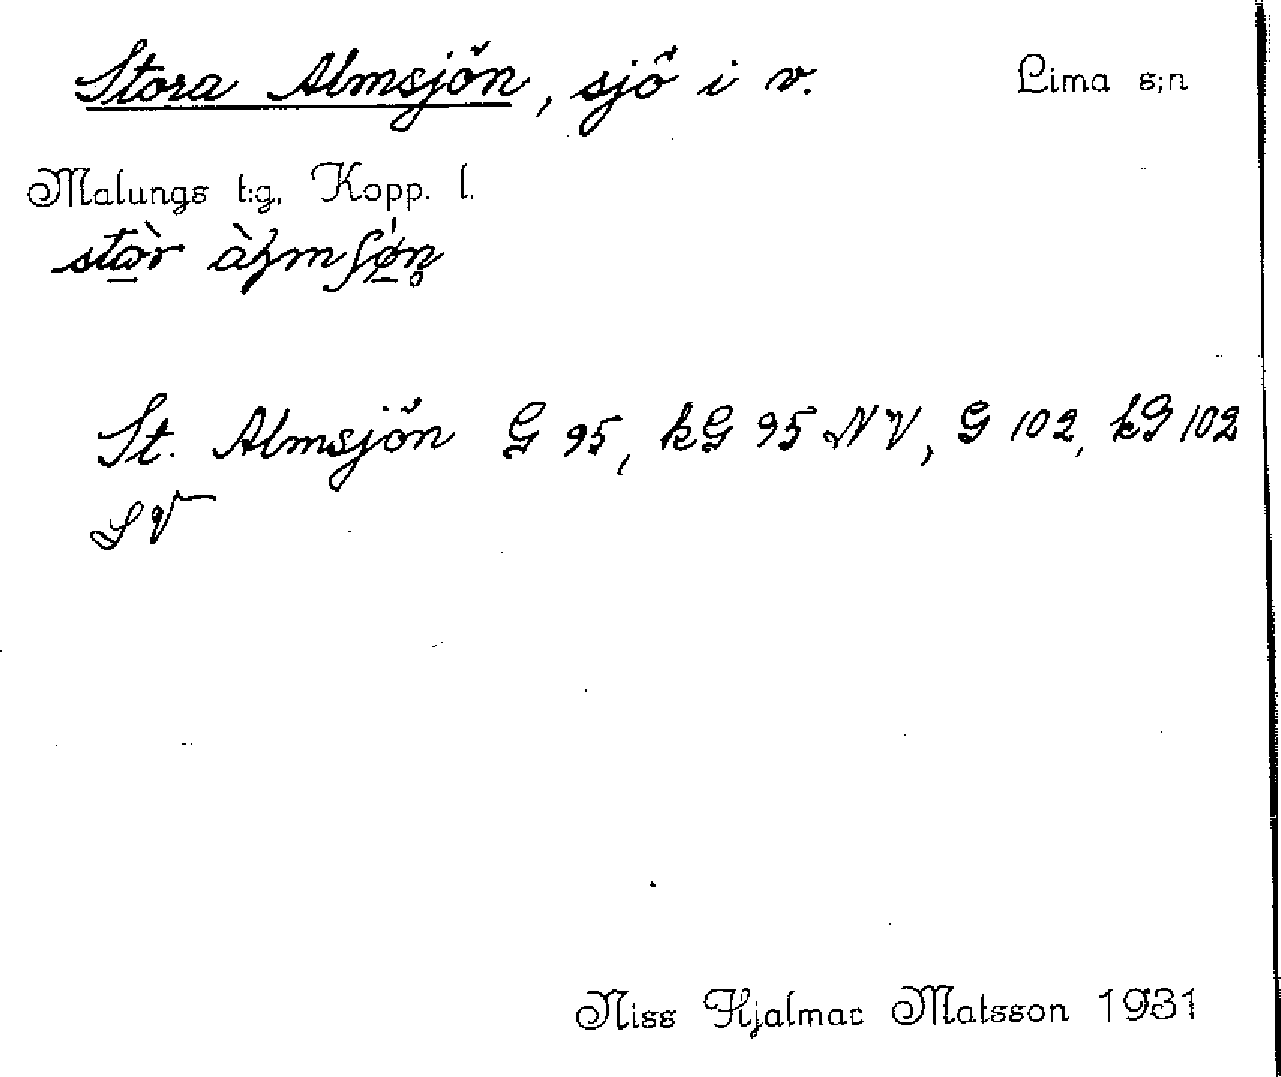 Stora Almsjön, sjö i v. Lima s:n
Malungs t:g. Kopp. l.
St. Almsjön G 95, kG 95 NV, G 102, kG 102
SV
Niss Hjalmar Matsson 1931